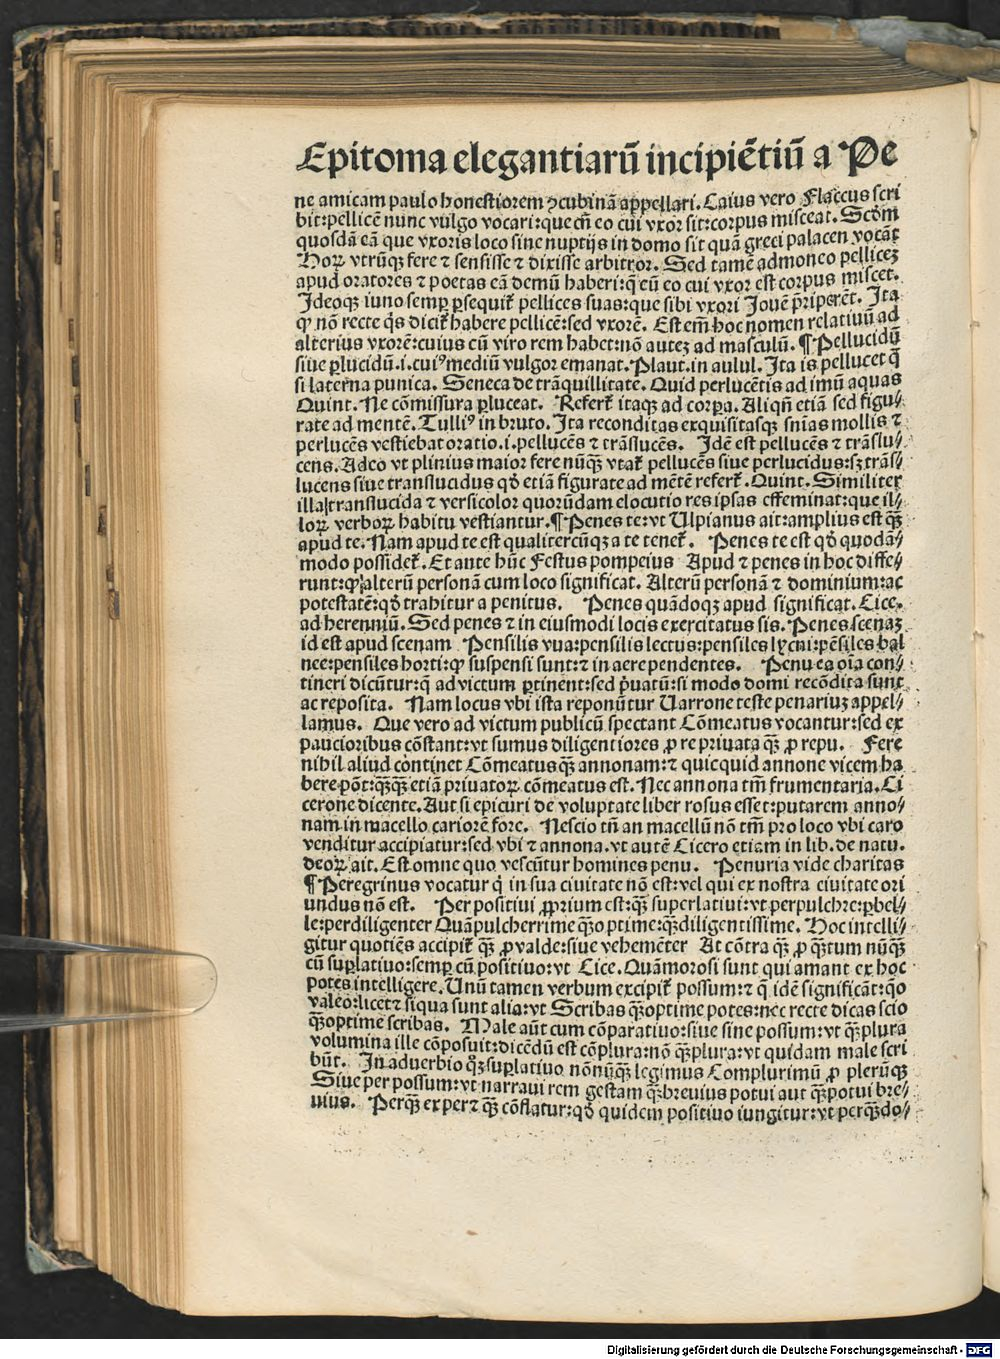 Epitoma elegantiarū incipiētiū a Pe
ne amicam paulo honestiorem ꝯcubinā appellari. Caius vero Flaccus scri
bit: pellicē nunc vulgo vocari: que cū eo cui vxor sit: corpus misceat. Scḋm
quosdā eā que vxoris loco sine nuptijs in domo sit quā greci palacen vocāt
Hoꝝ vtrūqꝫ fere ⁊ sensisse ⁊ dixisse arbitror. Sed tamē admoneo pelliceꝫ
apud oratores ⁊ poetas eā demū haberi: q̄ cū eo cui vxor est corpus miscet.
Ideoqꝫ iuno semꝑ ꝑsequit᷑ pellices suas: que sibi vxori Jouē p̄riperēt. Ita
ꝙ nō recte q̇s dicit᷑ habere pellicē: sed vxorē. Est em̄ hoc nomen relatiuū ad
alterius vxorē: cuius cū viro rem habet: nō auteꝫ ad masculū. ¶ Pellucidū
siue ꝑlucidū .i. cuiꝰ mediū vulgor emanat. Plaut. in aulul. Ita is pellucet q̄
si laterna punica. Seneca de trāquillitate. Quid perlucētis ad imū aquas
Quint. Ne cōmissura ꝑluceat. Refert᷑ itaqꝫ ad corꝑa. Aliqn̄ etiā sed figu⸗
rate ad mentē. Tulliꝰ in bruto. Ita reconditas exquisitasqꝫ sn̄ias mollis ⁊
perlucēs vestiebat oratio .i. pellucēs ⁊ trāslucēs. Idē est pellucēs ⁊ trāslu⸗
cens. Adeo vt plinius maior fere nūqꝫ̄ vtat᷑ pellucēs siue perlucidus: sꝫ trās⸗
lucens siue translucidus qḋ etiā figurate ad mētē refert᷑. Quint. Similiter
illa translucida ⁊ versicolor quorūdam elocutio res ipsas effeminat: que il⸗
loꝝ verboꝝ habitu vestiantur. ¶ Penes te: vt Ulpianus ait: amplius est qꝫ̄
apud te. Nam apud te est qualitercūqꝫ a te tenet᷑. Penes te est qḋ quodā⸗
modo possidet᷑. Et ante hūc Festus pompeius Apud ⁊ penes in hoc diffe⸗
runt: ꝙ alterū personā cum loco significat. Alterū personā ⁊ dominium: ac
potestatē: qḋ trahitur a penitus. Penes quādoqꝫ apud significat. Cice.
ad herenniū. Sed penes ⁊ in eiusmodi locis exercitatus sis. Penes scenaꝫ
id est apud scenam Pensilis vua: pensilis lectus: pensiles lycni: pēsiles bal
nee: pensiles horti: ꝙ suspensi sunt: ⁊ in aere pendentes. Penu ea oīa con⸗
tineri dicūtur: q̄ ad victum ꝑtinent: sed p̄uatū: si modo domi recōdita sunt
ac reposita. Nam locus vbi ista reponūtur Uarrone teste penariuꝫ appel⸗
lamus. Que vero ad victum publicū spectant Cōmeatus vocantur: sed ex
paucioribus cōstant: vt sumus diligentiores ꝓ re priuata qꝫ̄ ꝓ repu. Fere
nihil aliud continet Cōmeatus qꝫ̄ annonam: ⁊ quicquid annone vicem ha
bere pōt: qꝫ̄qꝫ̄ etiā priuatoꝝ cōmeatus est. Nec annona tm̄ frumentaria. Ci
cerone dicente. Aut si epicuri de voluptate liber rosus esset: putarem anno⸗
nam in macello cariorē fore. Nescio tn̄ an macellū nō tm̄ pro loco vbi caro
venditur accipiatur: sed vbi ⁊ annona. vt autē Cicero etiam in lib. de natu.
deoꝝ ait. Est omne quo vescūtur homines penu. Penuria vide charitas
¶ Peregrinus vocatur q̇ in sua ciuitate nō est: vel qui ex nostra ciuitate ori
undus nō est. Per positiui ꝓprium est: qꝫ̄ superlatiui: vt perpulchre: ꝑbel⸗
le: perdiligenter Quāpulcherrime qꝫ̄optime: qꝫ̄diligentissime. Hoc intelli⸗
gitur quotiēs accipit᷑ qꝫ̄ ꝓ valde: siue vehemēter At cōtra qꝫ̄ ꝓ qꝫ̄tum nūqꝫ̄
cū suꝑlatiuo: semꝑ cū positiuo: vt Cice. Quāmorosi sunt qui amant ex hoc
potes intelligere. Unū tamen verbum excipit᷑ possum: ⁊ q̄ idē significāt: qo
valeo: licet ⁊ siqua sunt alia: vt Scribas qꝫ̄optime potes: nec recte dicas scio
qꝫ̄optime scribas. Male aūt cum cōparatiuo: siue sine possum: vt qꝫ̄plura
volumina ille cōposuit: dicēdū est cōplura: nō qꝫ̄plura: vt quidam male scri
būt. In aduerbio qꝫ suꝑlatiuo nōnūqꝫ̄ legimus Complurimū ꝓ plerūqꝫ
Siue per possum: vt narraui rem gestam qꝫ̄breuius potui aut qꝫ̄potui bre⸗
uius. Perqꝫ̄ ex per ⁊ qꝫ̄ cōflatur: qḋ quidem positiuo iungitur: vt perqꝫ̄do⸗
Digitalisierung gefördert durch die Deutsche Forschungsgemeinschaft - DFG